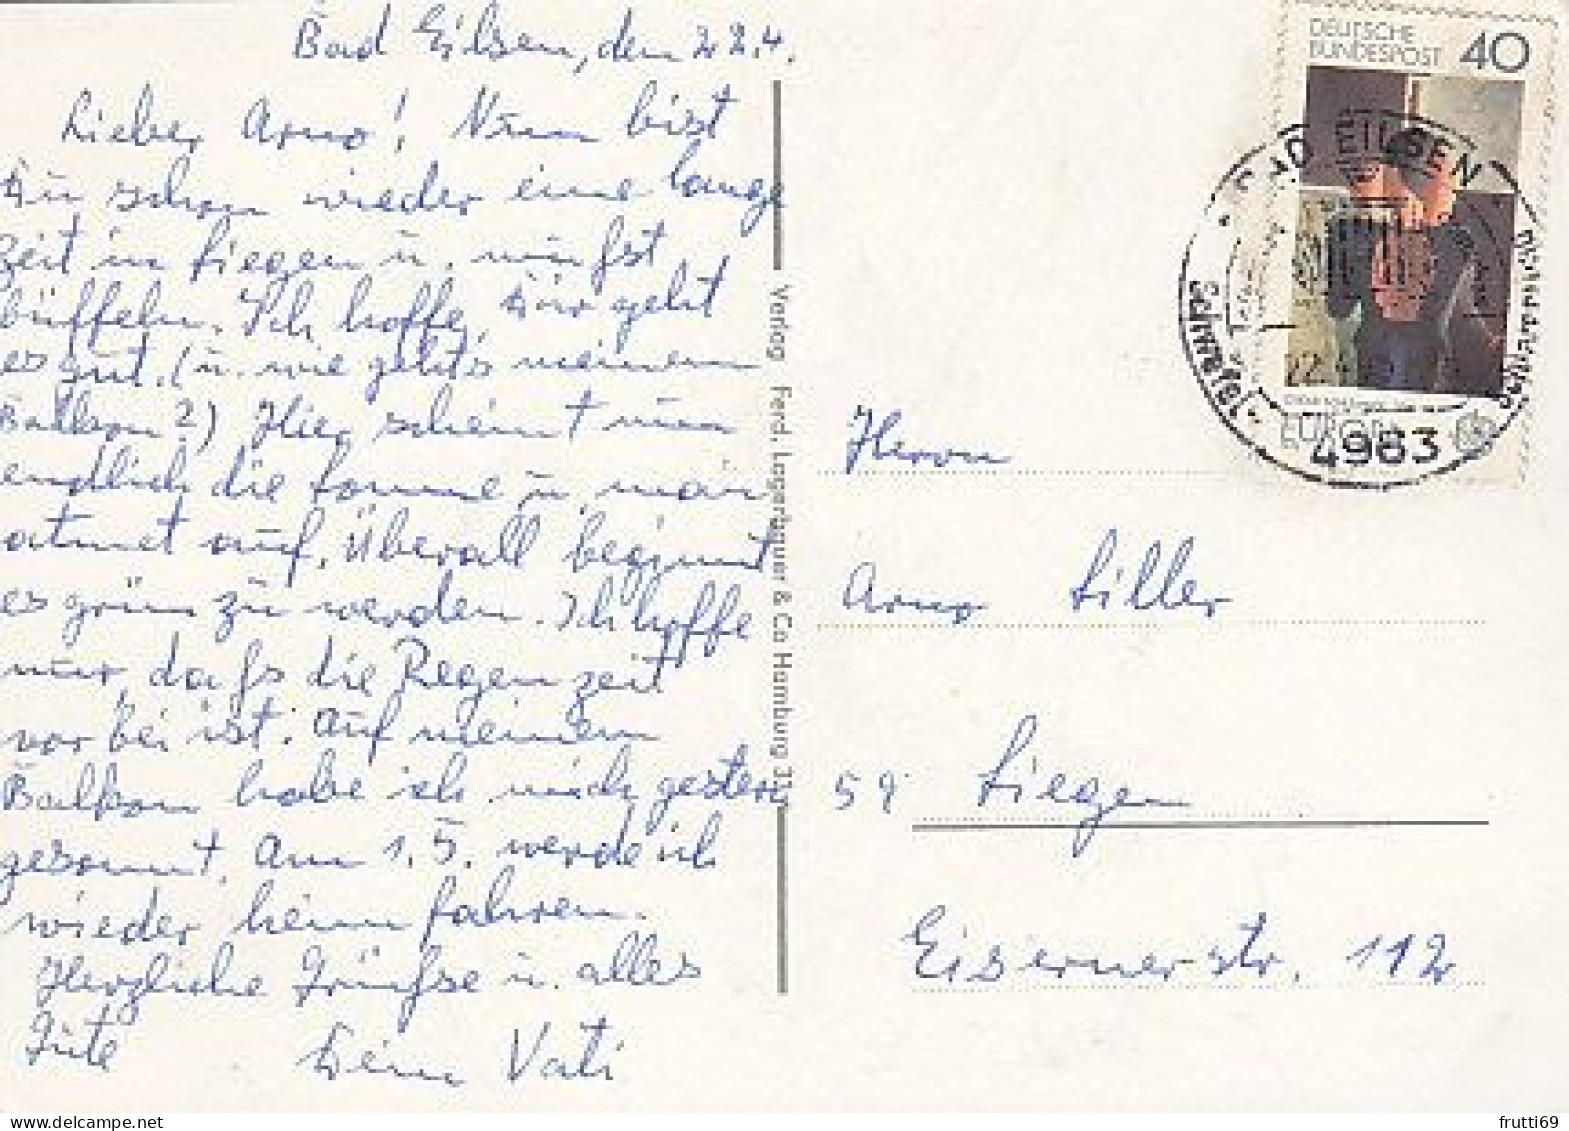 Bad Eilsen, den 22.4.
Lieber Arno! Nun bist
Du schon wieder eine lange
Zeit in Siegen u. mußt
büffeln. Ich hoffe, Dir geht
es gut. (u. wie geht's meinem
Balkon?) Hier scheint nun
endlich die Sonne u. man
atmet auf. Überall beginnt
es grün zu werden. Ich hoffe
nur, daß die Regenzeit
vorbei ist. Auf meinem
Balkon habe ich mich gestern
gesonnt. Am 1.5. werde ich
wieder heimfahren.
Herzliche Grüße u. alles
Gute
Dein Vati
Verlag Ferd. Lagerbauer & Co Hamburg
DEUTSCHE
BUNDESPOST 40
EUROPA
BAD EILSEN
Schwefel-
Schlammbad
22.4
4963
Herrn
Arno Siller
59 Siegen
Eisernerstr. 112
frutti69